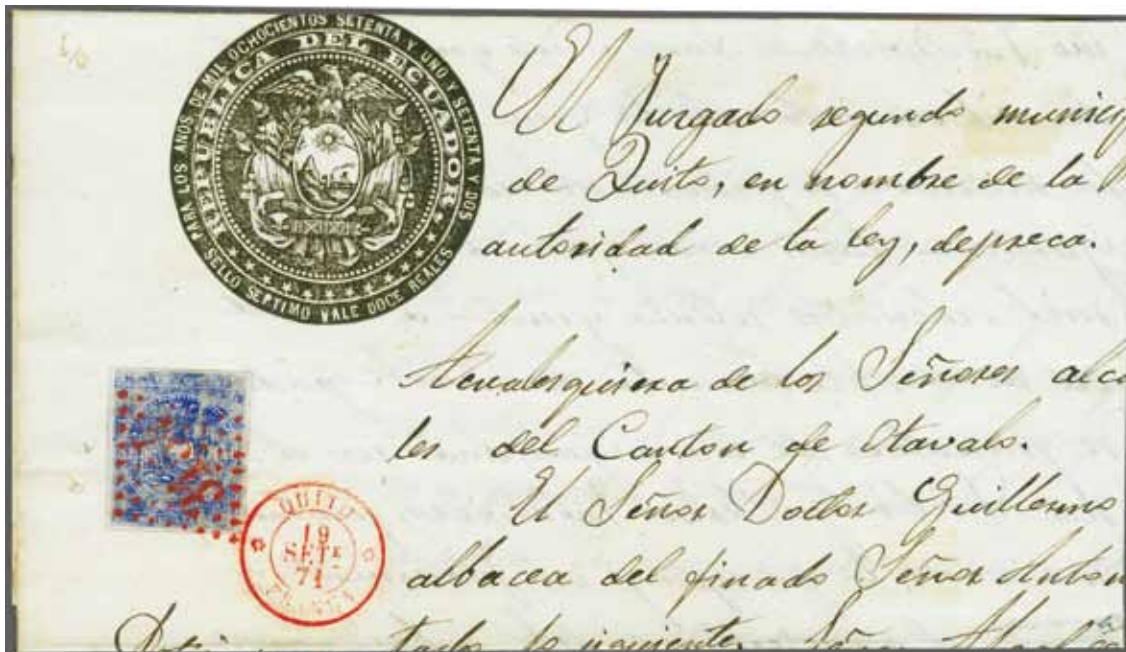 PARA LOS AÑOS DE MIL OCHOCIENTOS SETENTA Y UNO Y SETENTA Y DOS
REPUBLICA DEL ECUADOR
SELLO SEPTIMO VALE DOCE REALES
El Jurgado segundo munici
de Quito, en nombre de la
autoridad de la ley, depreca.
Acualesquiera de los Señores alca
les del Canton de Otavalo.
El Señor Doctor Guillermo
albacea del finado Señor Anton
QUITO
19
SETE
71
FRANCA